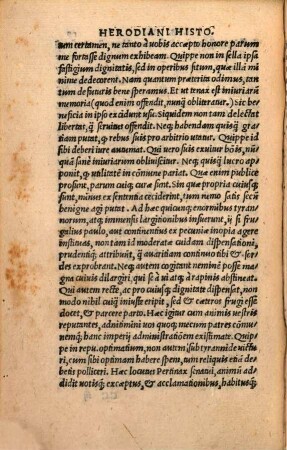 HERODIANI HISTO.
uem certamen, ne tanto à uobis accepto honore parum
me fortasse dignum exhibeam. Quippe non in sella ipsa
fastigium dignitatis, sed in operibus situm, quæ illā mi
nime dedecorent. Nam quantum præterita odimus, tan
tum de futuris bene speramus. Et ut tenax est iniuriarū
memoria (quod enim offendit, nunq̄ obliteratur.) Sic be
neficia in ipso exidunt usu. Siquidem non tam delectat
libertas, q̄ seruitus offendit. Neq; habendam quisq̄ grā
tiam putat, q̄ rebus suis pro arbitrio utatur. Quippe id
sibi deberi iure autumat. Qui uero suis exuitur bōis, nū
quā sanè iniuriarum obliuiscitur. Neq; quisq̄ lucro ap
ponit, q̄ utilitatē in cōmune pariat. Quæ enim publice
prosunt, parum cuiq; sunt curæ. Sin quæ propria cuiusq;
sunt, minus ex sententia ceciderint, tum uero nemo satis secū
benigne agi putat. Ad hæc quicunq; enormibus tyran
norum, atq; immensis largitionibus insuerunt, ij si fru
gulius paulo, aut continentius ex pecuniæ inopia agere
instituas, non tam id moderatæ cuidam dispensationi,
prudentiæq; attribuūt, q̄ auaritiam continuo tibi & sor
des exprobrant. Neq; autem cogitant neminem posse ma
gna cuiuis dilargiri, qui se à ui atq; à rapinis abstineat.
Qui autem recte, ac pro cuiusq; dignitate dispenset, non
modo nihil cuiq̄ iniuste eripit, sed & cæteros frugi esse
docet, & parcere parto. Hæc igitur cum animis uestris
reputantes, adnitimini uos quoq; mecum patres cōmu
nemq; hanc imperij administrationem existimate. Quip
pe in repu. optimatium, non autem sub tyranide uictu
ri, cum sibi optimam habere spem, tum reliquis etiā de
betis polliceri. Hæc locutus Pertinax senatui, animū ad
didit uotisq; exceptus, & acclamationibus, habitusq;